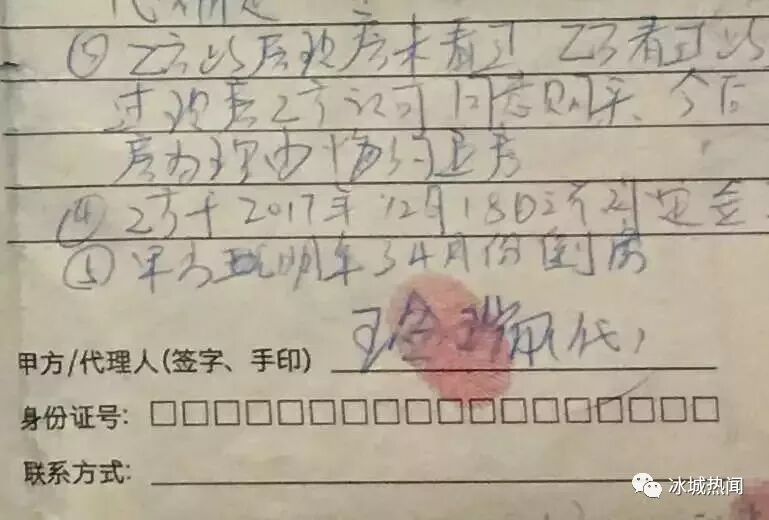 ③乙方以房现房未看过 乙方看过此
过现房乙方认可同意购买、今后
房为理由悔约退房
④乙方于2017年12月18日交付定金
⑤甲方在明年3 4月份倒房
王金瑞(代)
甲方/代理人(签字、手印)
身份证号: □□□□□□□□□□□□□□□□□□
联系方式:
冰城热闻